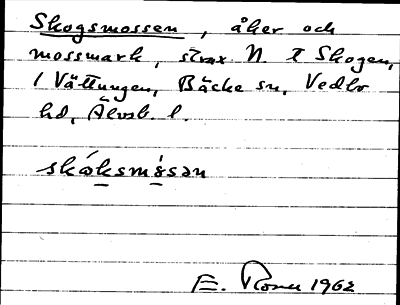 Skogsmossen, åker och
mossmark, strax N. t Skogen,
1 Vättungen, Bäcke sn, Vedbo
hd, Älvsb. l.
skóksmósən
E. 1962